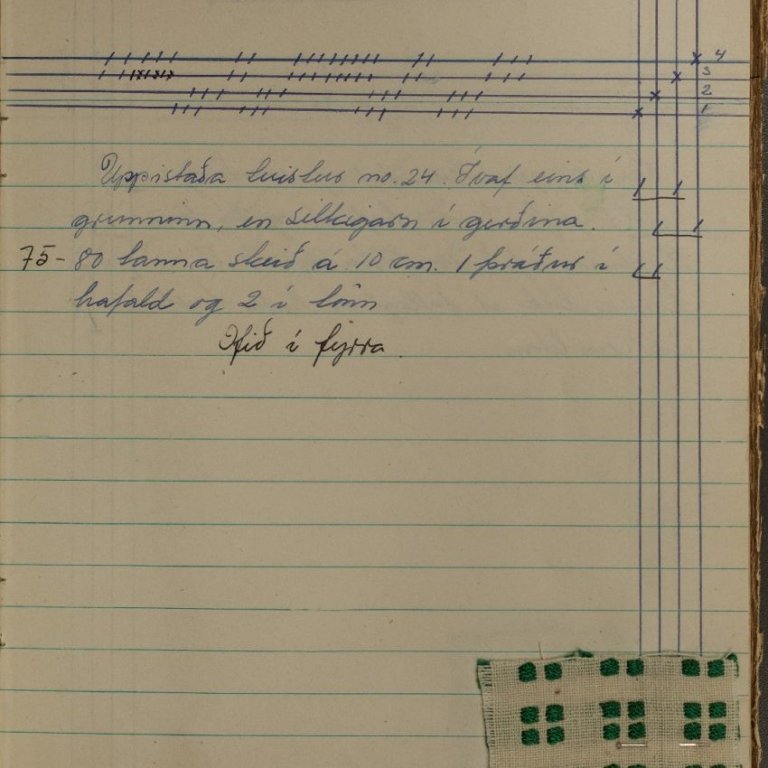 4
3
2
1
Uppistaða tvistur no. 24. Ívaf eins í
grunninn, en silkigarn í gerðina.
75- 80 tanna skeið á 10 cm. 1 þráður í
hafald og 2 í tönn
Ofið í fyrra.